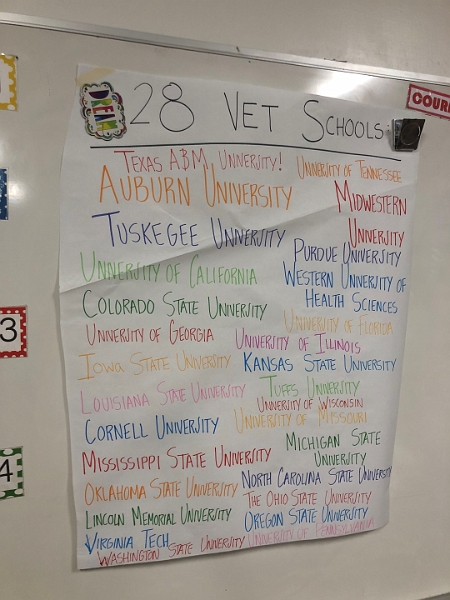 DREAM
28 VET SCHOOLS
COUR
TEXAS A&M UNIVERSITY!
UNIVERSITY OF TENNESSEE
AUBURN UNIVERSITY
MIDWESTERN
UNIVERSITY
TUSKEGEE UNIVERSITY
PURDUE UNIVERSITY
UNIVERSITY OF CALIFORNIA
WESTERN UNIVERSITY OF
HEALTH SCIENCES
COLORADO STATE UNIVERSITY
UNIVERSITY OF FLORIDA
UNIVERSITY OF GEORGIA
UNIVERSITY OF ILLINOIS
3
IOWA STATE UNIVERSITY
KANSAS STATE UNIVERSITY
LOUISIANA STATE UNIVERSITY
TUFTS UNIVERSITY
UNIVERSITY OF WISCONSIN
CORNELL UNIVERSITY
UNIVERSITY OF MISSOURI
MICHIGAN STATE
UNIVERSITY
MISSISSIPPI STATE UNIVERSITY
4
OKLAHOMA STATE UNIVERSITY
NORTH CAROLINA STATE UNIVERSITY
THE OHIO STATE UNIVERSITY
LINCOLN MEMORIAL UNIVERSITY
OREGON STATE UNIVERSITY
VIRGINIA TECH
UNIVERSITY OF PENNSYLVANIA
WASHINGTON STATE UNIVERSITY